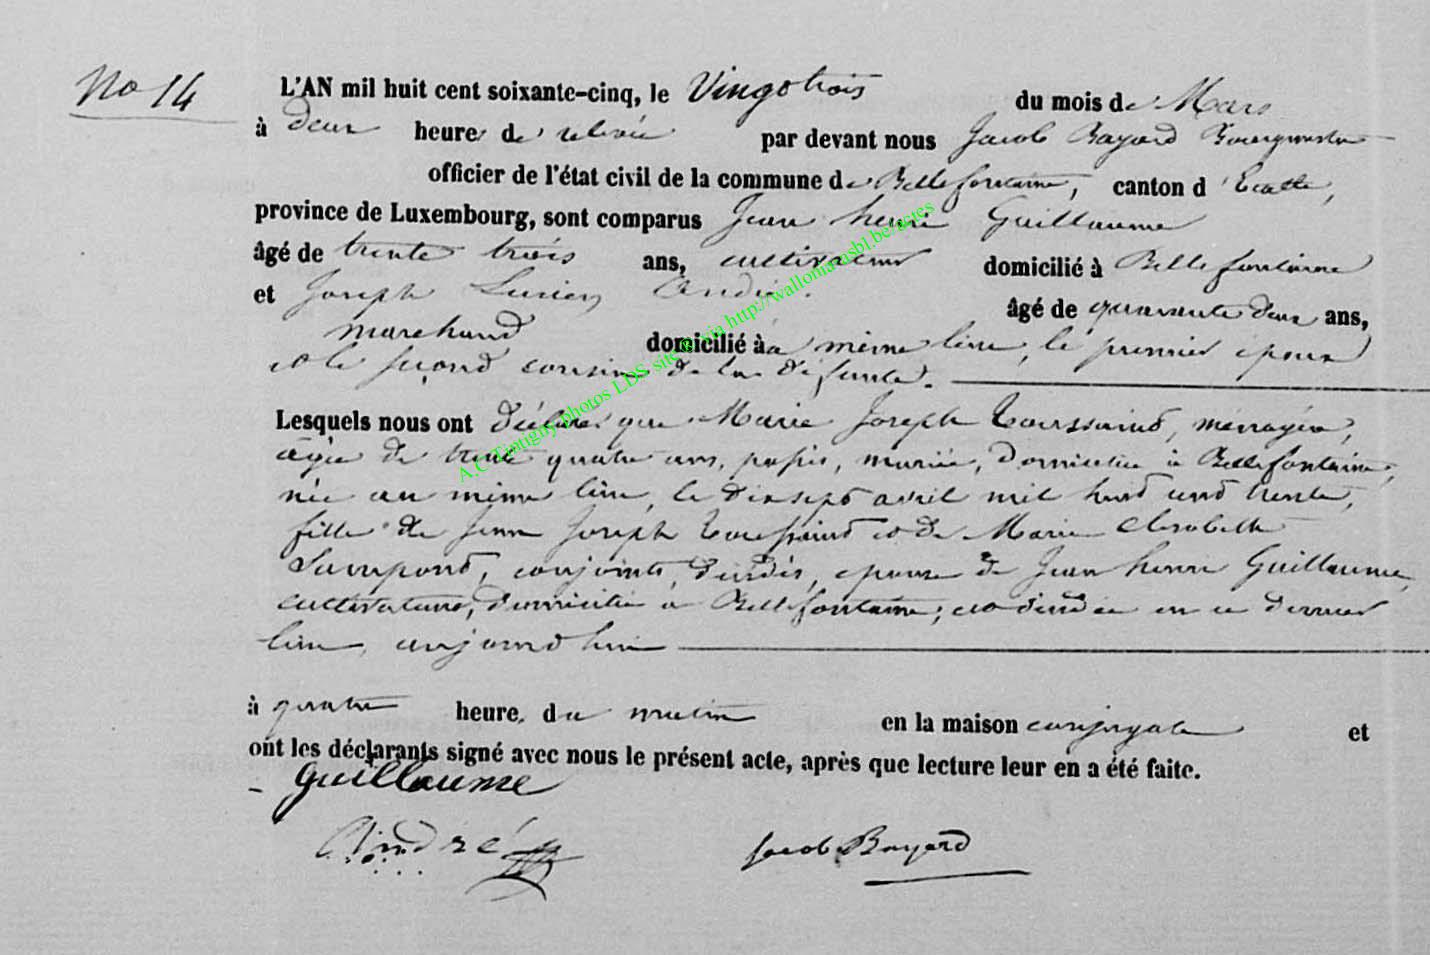 No 14
L'AN mil huit cent soixante-cinq, le Vingt trois du mois de Mars
à deux heures de relevée par devant nous Jacob Bayard Bourgmestre
officier de l'état civil de la commune de Bellefontaine, canton d'Etalle,
province de Luxembourg, sont comparus Jean henri Guillaume
âgé de trente trois ans, cultivateur domicilié à Bellefontaine
et Joseph Lucien André. âgé de quarante deux ans,
marchand domicilié à a même lieu, le premier époux
et le second cousin de la défunte.
Lesquels nous ont déclaré que Marie Joseph Toussaint, ménagère,
âgée de trente quatre ans, passés, mariée, domiciliée à Bellefontaine,
née au même lieu, le dix sept avril mil huit cent trente,
fille de Jean Joseph Toussaint et de Marie Elisabeth
conjoints, décédés, épouse de Jean henri Guillaume,
cultivateur, domicilié à Bellefontaine, est décédée en ce dernier
lieu, aujourd'hui
à quatre heures du matin en la maison conjugale et
ont les déclarants signé avec nous le présent acte, après que lecture leur en a été faite.
Guillaume
André Jacob Bayard
A.C Tintigny photos LDS, site &, via http://wallonia-asbl.be/actes